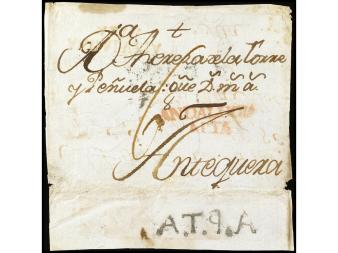 A Dª Theresa de la Torre
y Peñuela; que D. m. a.
ANDALUCIA
ALTA
Antequera
A.T.9.A